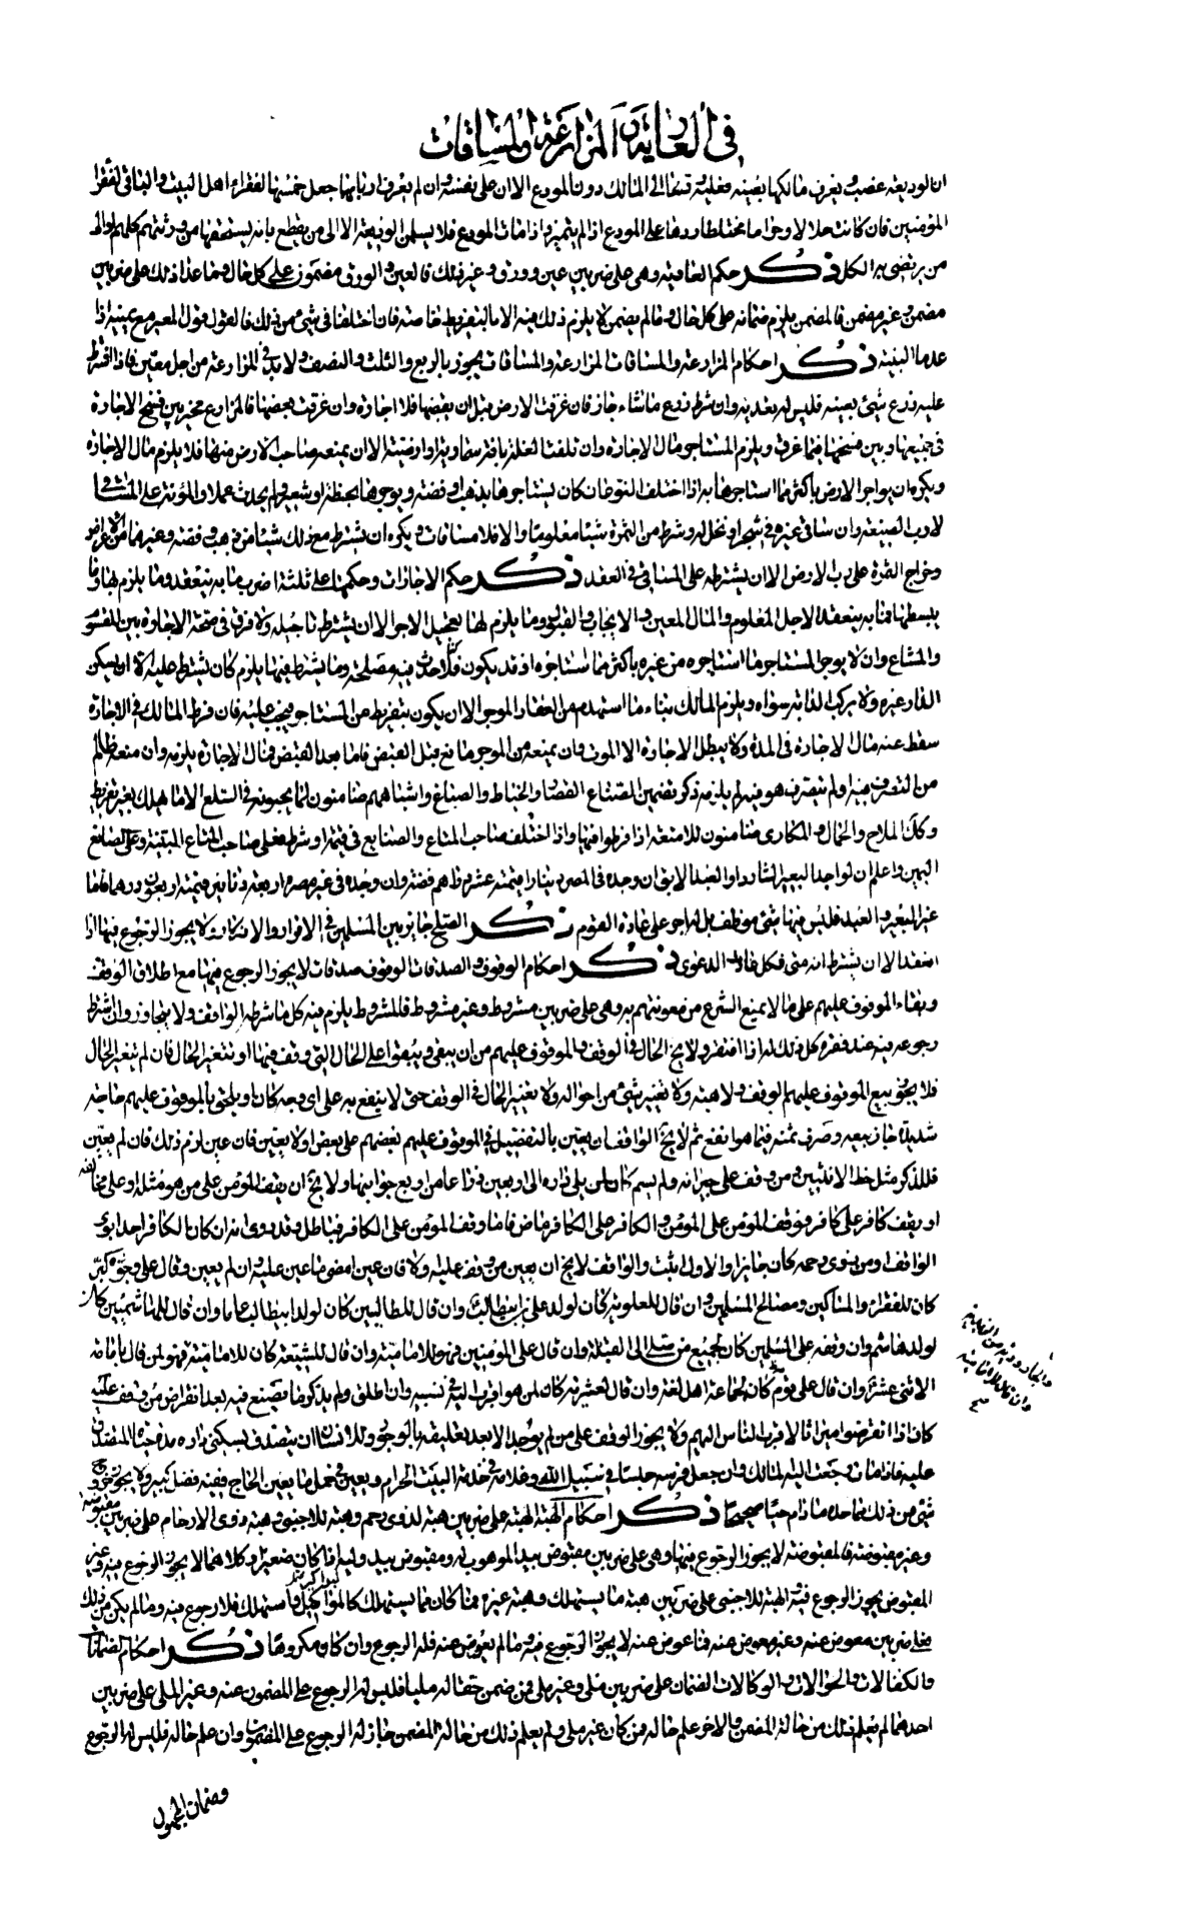 في العارية والمزارعة والمساقات
ان الوديعة غصب ويعرف مالكها بعينه فعليه رده الى المالك دون المودع الا ان على نفسه وان لم يعرف اربابها جعل خمسها لفقراء اهل البيت والباقي لفقراء
المؤمنين فان كانت حلالا وحراما مختلطا ردها على المودع اذا لم يتميز واذا مات المودع فلا يسلمن الوديعة الا الى من يقطع بانه يستحقها من ورثته كلهم او الى
من يرتضى به الكل ذكر حكم العارية وهي على ضربين عين وورق وغير ذلك فالعين والورق مضمون على كل حال وما عدا ذلك على ضربين
مضمن وغير مضمن فالمضمن يلزم ضمانه على كل حال وما لم يضمن لا يلزم ذلك فيه الا ما التفريط خاصة فان اختلفا في شيء من ذلك فالقول قول المعير مع يمينه اذا
عدما البينة ذكر احكام المزارعة والمساقات المزارعة والمساقات يجوز بالربع والثلث والنصف ولا بد في المزارعة من اجل معين فاذا اشترط
عليه زرع شيء بعينه فليس له تعديه وان شرط زرع ما شاء جاز فان غرقت الارض قبل ان يقبضها فلا اجارة وان غرقت بعضها فالمزارع مخير بين فسخ الاجارة
في جميعها وبين فسخها فيما غرق ويلزم المستاجر مال الاجارة وان تلفت الغلة بآفة سماوية او ارضية الا ان يمنعه صاحب الارض منها فلا يلزم مال الاجارة
ويكره ان يواجر الارض باكثر مما استاجرها به اذا اختلف النوعان كان يستاجرها بذهب او فضة ويوجرها بحنطة او شعير ولم يحدث عملا والمؤنة على المساقى
لا رب الضيعة وان ساقى غيره في شجر او نخل له وشرط من الثمرة شيئا معلوما والا فلا مساقات ويكره ان يشترط مع ذلك شيئا من ذهب وفضة وغيرهما من الاعراض
وخراج الثمرة على رب الارض الا ان يشترطه على المساقي في العقد ذكر حكم الاجارات وحكمها على ثلثة اضرب ما به ينعقد وما يلزم لها وما
يبطلها فما به ينعقد الاجل المعلوم والمال المعين والايجاب والقبول وما يلزم لها تعجيل الاجر الا ان يشترط تاجيله ولا فرق في صحة الاجارة بين المقسوم
والمشاع وان لا يوجر المستاجر ما استاجره من غيره باكثر مما استاجره اذ قد يكون قد احدث فيه مصلحة وما يشترط فيها يلزم كان يشترط عليه الا ان يسكن
الدار غيره ولا يركب الدابة سواه ويلزم المالك بناء ما استهدم من العقار الموجر الا ان يكون بتفريط من المستاجر فيجب عليه فان فرط المالك في الاجارة
سقط عنه مال الاجارة في المدة ولا يبطل الاجارة الا الموت فان يمنعه من الموجر مانع قبل القبض فاما بعد القبض فمال الاجارة يلزمه وان منعه ظالم
من التصرف فيه او لم يتصرف هو فيه لم يلزمه ذكر تضمين الصناع القصار والخياط والصباغ واشباههم ضامنون لما يجنونه في السلع الا ما هلك بغير تفريط
وكذا الملاح والحمال والمكارى ضامنون للامتعة اذا فرطوا فيها واذا اختلف صاحب المتاع والصنايع في قيمة او شرط فعلى صاحب المتاع البينة وعلى الصانع
اليمين واعلم ان لواجد البعير الشارد او العبد الآبق ان وجده في المصر دينارا قيمته عشرة دراهم فضة وان وجده في غير مصره اربعة دنانير قيمته اربعون درهما فاما
غير البعير والعبد فليس فيها شيء موظف بل له اجر على عادة القوم ذكر الصلح جايز بين المسلمين في الاقرار والانكار ولا يجوز الرجوع فيها اذا
انعقد الا ان يشترط انه متى نكل عاد الدعوى ذكر احكام الوقوف والصدقات الوقوف صدقات لا يجوز الرجوع فيها مع اطلاق الوقف
وبقاء الموقوف عليهم على ما لا يمنع الشرع من معونتهم به وهي على ضربين مشروط وغير مشروط فالمشروط يلزم فيه كل ما شرطه الواقف ولا يتجاوز وان شرط
رجوعه فيه عند فقره كل ذلك له اذا افتقر ولا يخ الحال في الوقف والموقوف عليهم من ان يبقى ويبقوا على الحال التي وقف فيها او تتغير الحال فان لم يتغير الحال
فلا يجوز بيع الموقوف عليهم لوقف ولا هبته ولا تغيير شيء من احواله ولا تغيير الحال في الوقف حتى لا ينتفع به على اي وجه كان او يلحق بالموقوف عليهم حاجة
شديدة جاز بيعه وصرف ثمنه فيما هو انفع ثم لا يخ الواقف ان يعين بالتفضيل في الموقوف عليهم بعضهم على بعض او لا يعين فان عين لزم ذلك فان لم يعين
فللذكر مثل حظ الانثيين ومن وقف على جيرانه ولم يسم كان لمن يلي داره الى اربعين ذراعا من اربع جوانبها ولا يخ ان يقف المؤمن على من هو مثله او على مخالفه
او يقف كافر على كافر فوقف المؤمن على المؤمن والكافر على الكافر ماض فاما وقف المؤمن على الكافر فباطل وقد روى انه ان كان الكافر احد ابوى
الواقف او من ذوى رحمه كان جايزا والاول اثبت والواقف لا يخ ان يعين من وقف عليه ولا فان عين امضى ما عين عليه وان لم يعين وقال على وجوه البر
كان للفقراء والمساكين ومصالح المسلمين وان قال للعلوية كان لولد علي بن ابيطالب وان قال للطالبيين كان لولد ابيطالب عاما وان قال للهاشميين كان
لولد هاشم وان وقفه على المسلمين كان لجميع من صلى الى القبلة وان قال على المؤمنين فهو للامامية وان قال للشيعة كان للامامية فهو لمن قال بامامة
الاثنى عشر وان قال على قوم كان لجماعة اهل لغته وان قال لعشيرته كان لمن هو اقرب اليه في نسبه وان اطلق ولم يذكر ما يصنع فيه بعد انقراض من وقف عليه
كان اذا انقرضوا ميراثا لاقرب الناس اليهم ولا يجوز الوقف على من لم يوجد الا بعد تعليقه بالموجود وللانسان ان يتصدق بسكنى داره مدة حياة المتصدق
عليه فاذا مات رجعت اليه المالك وان جعل فرسه حبيسا في سبيل الله وغلامه في خدمة البيت الحرام وبعيره في حمل ما يعين الحاج ففيه فضل كبير ولا يجوز الرجوع في
شيء من ذلك فما حله ما دام حيا صحيحا ذكر احكام الهبة الهبة على ضربين هبة لذوى رحم وهبة للاجنبى وهبة ذوى الارحام على ضربين مقبوضة
وغير مقبوضة فالمقبوضة لا يجوز الرجوع فيها وهي على ضربين مقبوض بيد الموهوب له ومقبوض بيد وليه اذا كان صغيرا وكلاهما لا يجوز الرجوع فيه وغير
المقبوض يجوز الرجوع فيه والهبة للاجنبى على ضربين هبة ما يستهلك وهبة غيره فما كان مما يستهلك كالمواكيل فاستهلك فلا رجوع فيه وما لم يكن من ذلك
فعلى ضربين معوض عنه وغير معوض عنه فما عوض عنه لا يجوز الرجوع فيه وما لم يعوض عنه فله الرجوع وان كان مكروها ذكر احكام الضمانات
والكفالات والحوالات والوكالات الضمان على ضربين ملى وغير ملى فمن ضمن حقا له مليا فليس له الرجوع على المضمون عنه وغير الملى على ضربين
احدهما لم يعلم ذلك من حاله المضمن والآخر علم حاله فمن كان غير ملى ولم يعلم ذلك من حاله المضمن جاز له الرجوع على المضمون وان علم حاله فليس له الرجوع
وضمان المجهول